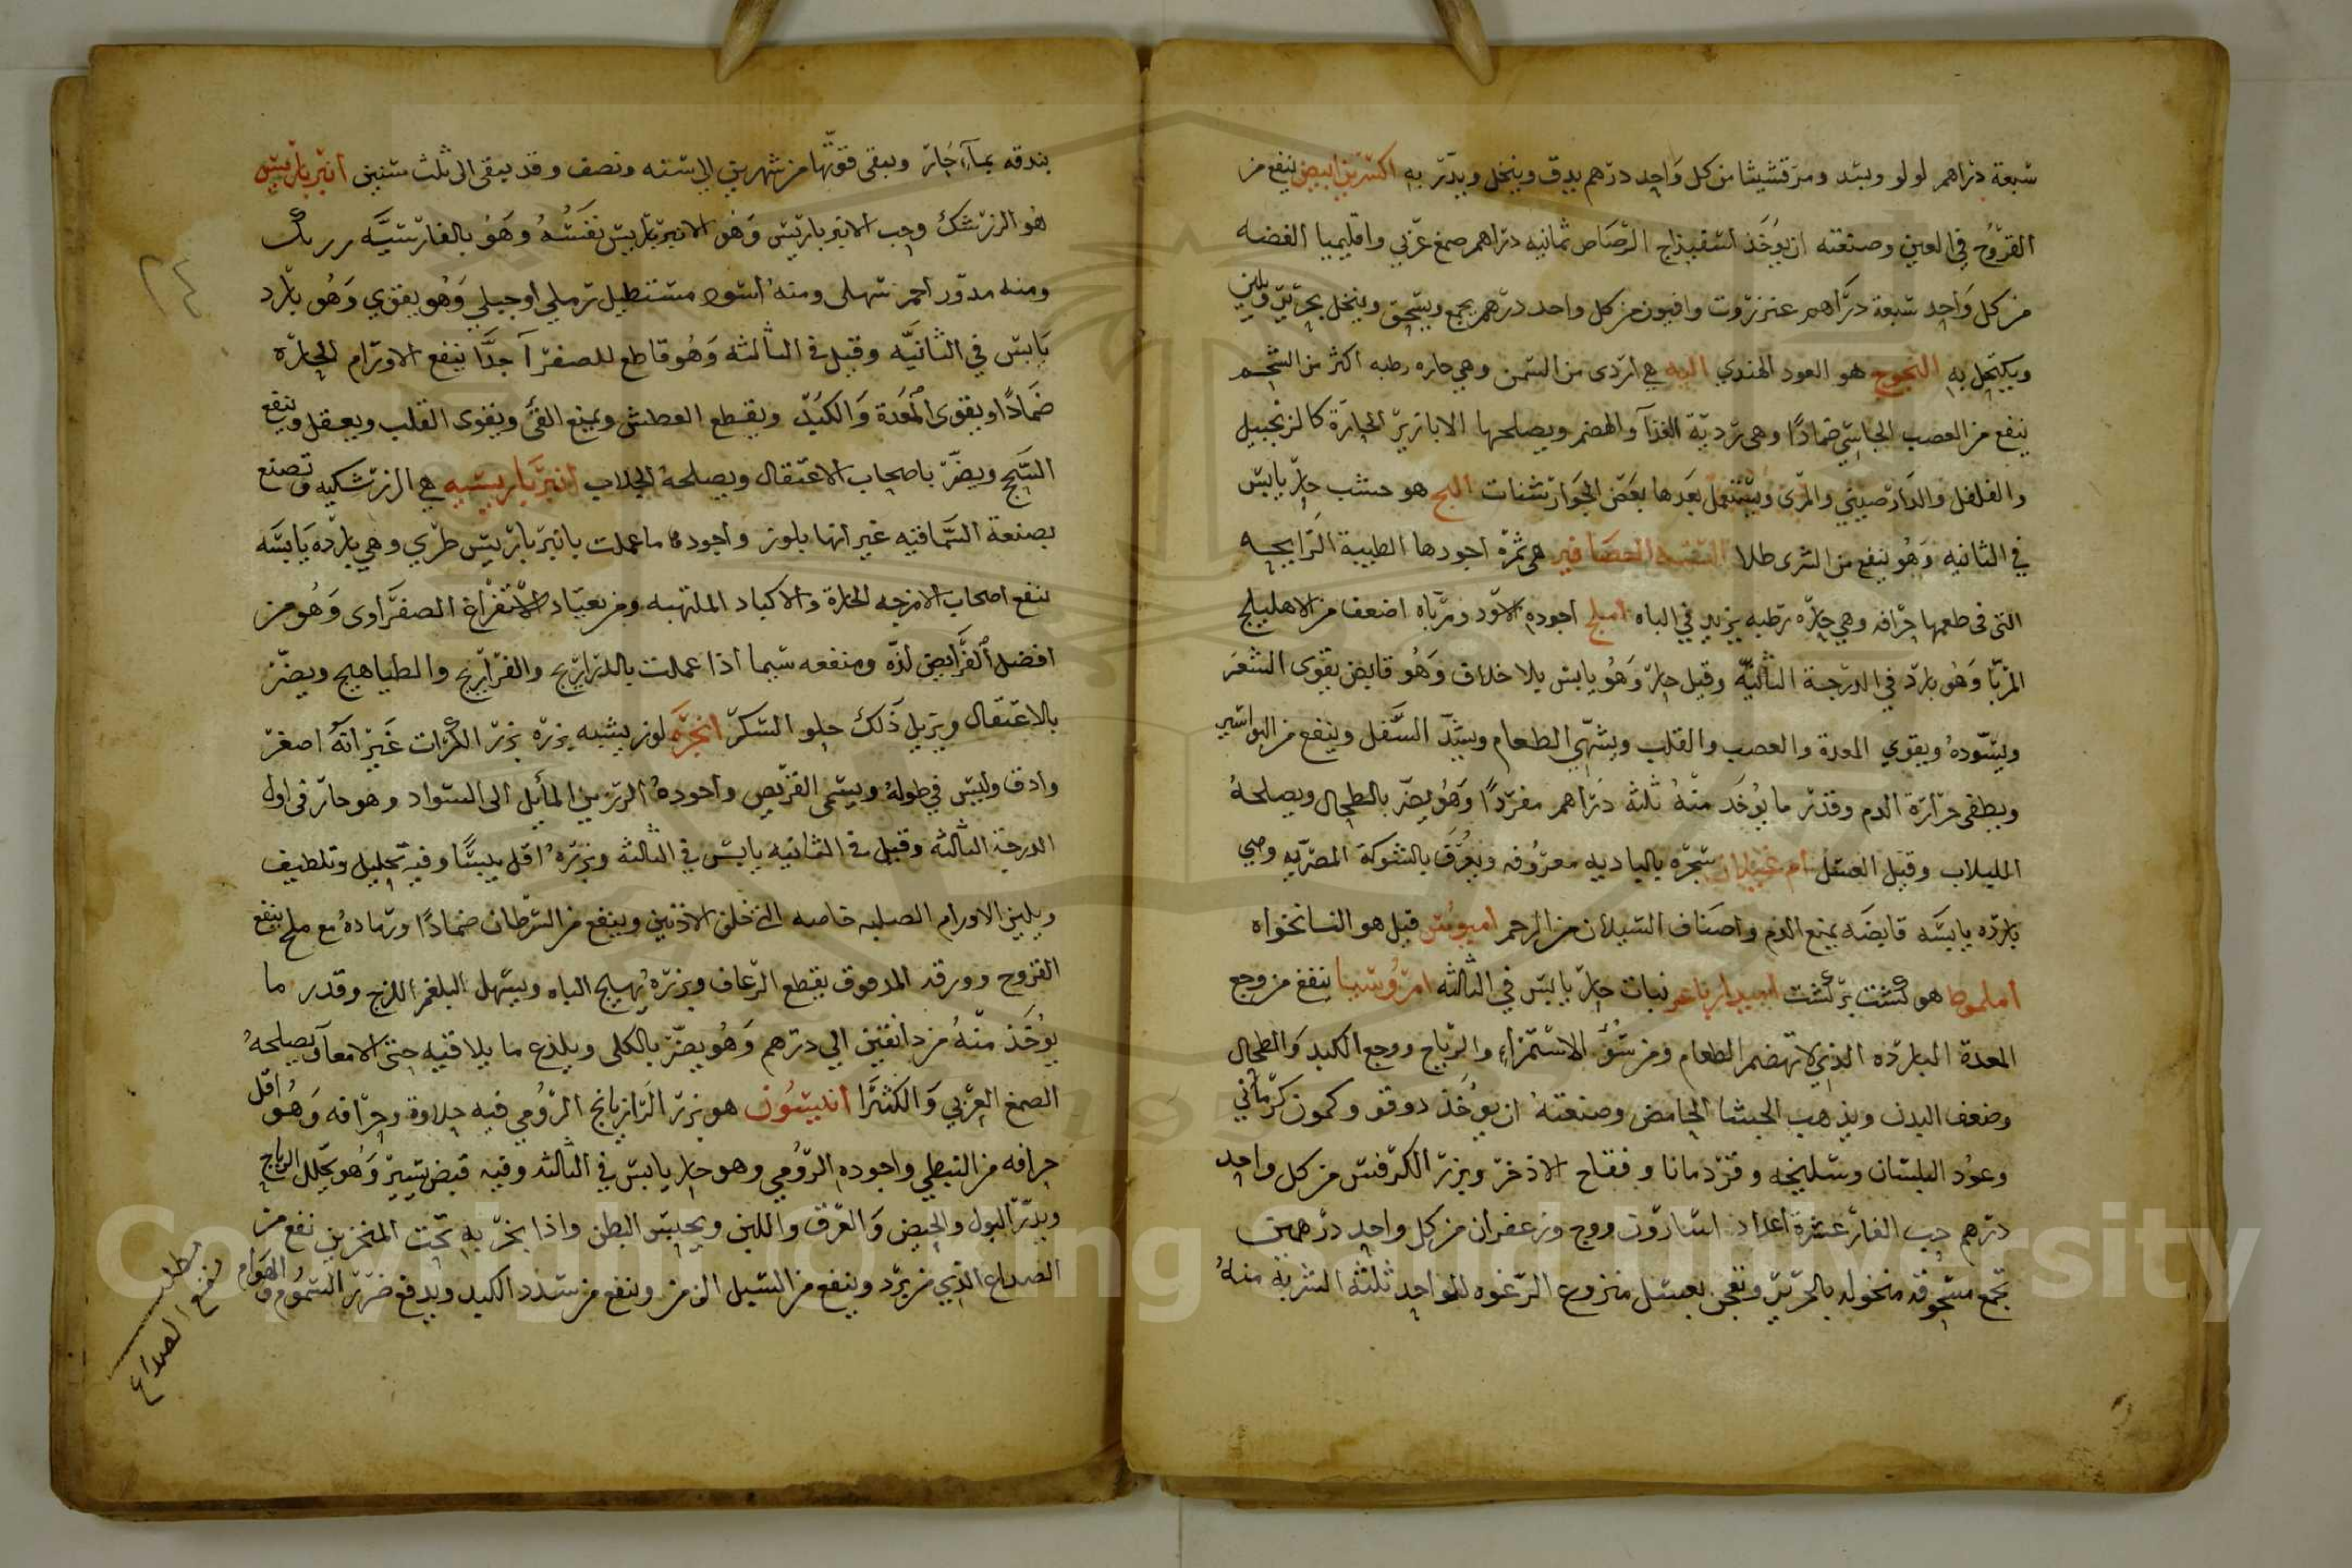 سبعة دراهم لولو وبسد ومرقشيثا من كل واحد درهم يدق وينخل ويذر به اكسيرين ابيض ينفع من
القروح في العين وصنعته ان يؤخذ اسفيذاج الرصاص ثمانيه دراهم صمغ عربي واقليميا الفضه
من كل واحد سبعة دراهم عنزروت وافيون من كل واحد درهم يجمع ويسحق وينخل بحرير ولين
ويكتحل به النجوج هو العود الهندي اليه هي اردى من السمن وهي حاره رطبه اكثر من الشحم
ينفع من العصب الجاسي ضمادا وهي ردية الغذآ والهضم ويصلحها الابازير الحارة كالزنجبيل
والفلفل والدارصيني والمري ويستعمل بعدها بعض الجوارشنات البج هو خشب حار يابس
في الثانيه وهو ينفع من الشرى طلا السنة العصافير هي ثمرة اجودها الطيبة الرايحه
التى فى طعمها حرافه وهي حاره رطبه يزيد في الباه املج اجوده الاسود ومرباه اضعف من الاهليلج
المربا وهو بارد في الدرجة الثانية وقيل حار وهو يابس بلا خلاف وهو قابض يقوى الشعر
ويسوده ويقوي المعدة والعصب والقلب ويشهي الطعام ويشد السفل وينفع من البواسير
ويطفى حرارة الدم وقدر ما يؤخذ منه ثلثة دراهم مفردا وهو يضر بالطحال ويصلحه
المليلاب وقيل العسل ام غيلان شجره بالباديه معروفه ويعرف بالشوكة المصريه وهي
بارده يابسه قابضه يمنع الدم واصناف السيلان من الرحم اميوس قيل هو النانخواه
املموط هو كشت بركشت نبات حار يابس في الثالثه امروسيا ينفع من وجع
المعدة البارده الذي لا تهضم الطعام ومن سؤ الاستمراء والرياح ووجع الكبد والطحال
وضعف البدن ويذهب الجشا الحامض وصنعته ان يؤخذ دوقو وكمون كرماني
وعود البلسان وسليخه وقردمانا وفقاح الاذخر وبزر الكرفس من كل واحد
درهم حب الغار عشرة اعداد اسارون ووج وزعفران من كل واحد درهمين
تجمع مسحوقه منخوله بالحرير وتعجن بعسل منزوع الرغوه للواحد ثلثه الشربة منه
بندقه بمآء حار ويبقى قوتها من شهرين الى سنه ونصف وقد يبقى الى ثلث سنين انبرباريس
هو الزرشك وحب الانبرباريس وهو الانبرباريس نفسه وهو بالفارسيه زرنك
ومنه مدور احمر سهلى ومنه اسود مستطيل رملي اوجبلي وهو يقوي وهو بارد
يابس في الثانيه وقيل في الثالثه وهو قاطع للصفرآ جدا ينفع الاورام الحاره
ضمادا ويقوى المعدة والكبد ويقطع العطش ويمنع القئ ويقوى القلب ويعقل وينفع
السحج ويضر باصحاب الاعتقال ويصلحه الجلاب انبرباريسيه هي الزرشكيه وتصنع
بصنعة السماقيه غير انها بلوز واجوده ما عملت بانبرباريس طري وهي بارده يابسه
ينفع اصحاب الامزجه الحارة والاكباد الملتهبه ومن يعتاد الاستفراغ الصفراوى وهو من
افضل القرايض لذه ومنفعه سيما اذا عملت بالدراريج والفراريج والطياهيج ويضر
بالاعتقال ويزيل ذلك حلو السكر انجره لوز يشبه بزره بزر الكراث غير انه اصغر
وادق وليس في طوله ويسمى القريص واجوده الرزين المايل الى السواد وهو حار فى اول
الدرجة الثالثه وقيل في الثانيه يابس في الثالثه وبزره اقل يبسا وفيه تحليل وتلطيف
ويلين الاورام الصلبه خاصه التى خلف الاذنين وينفع من السرطان ضمادا ورماده مع ملح ينفع
القروح وورقه المدقوق يقطع الرعاف وبزره يهيج الباه ويسهل البلغم اللزج وقدر ما
يؤخذ منه من دانقين الي درهم وهو يضر بالكلى ويلذع ما يلاقيه حتى الامعآ ويصلحه
الصمغ العربي والكثيرا انيسون هو بزر الرازيانج الرومي فيه حلاوة وحرافه وهو اقل
حرافه من النبطي واجوده الرومي وهو حار يابس في الثالثه وفيه قبض يسير وهو يحلل الرياح
ويدر البول والحيض والعرق واللبن ويحبس البطن واذا بخر به تحت المنخرين نفع من
الصداع الذي من برد وينفع من السيل المزمن وينفع من سدد الكبد ويدفع ضرر السموم والهوام
مطلب
نفع الصداع
٢٤
Copyright © King Saud University